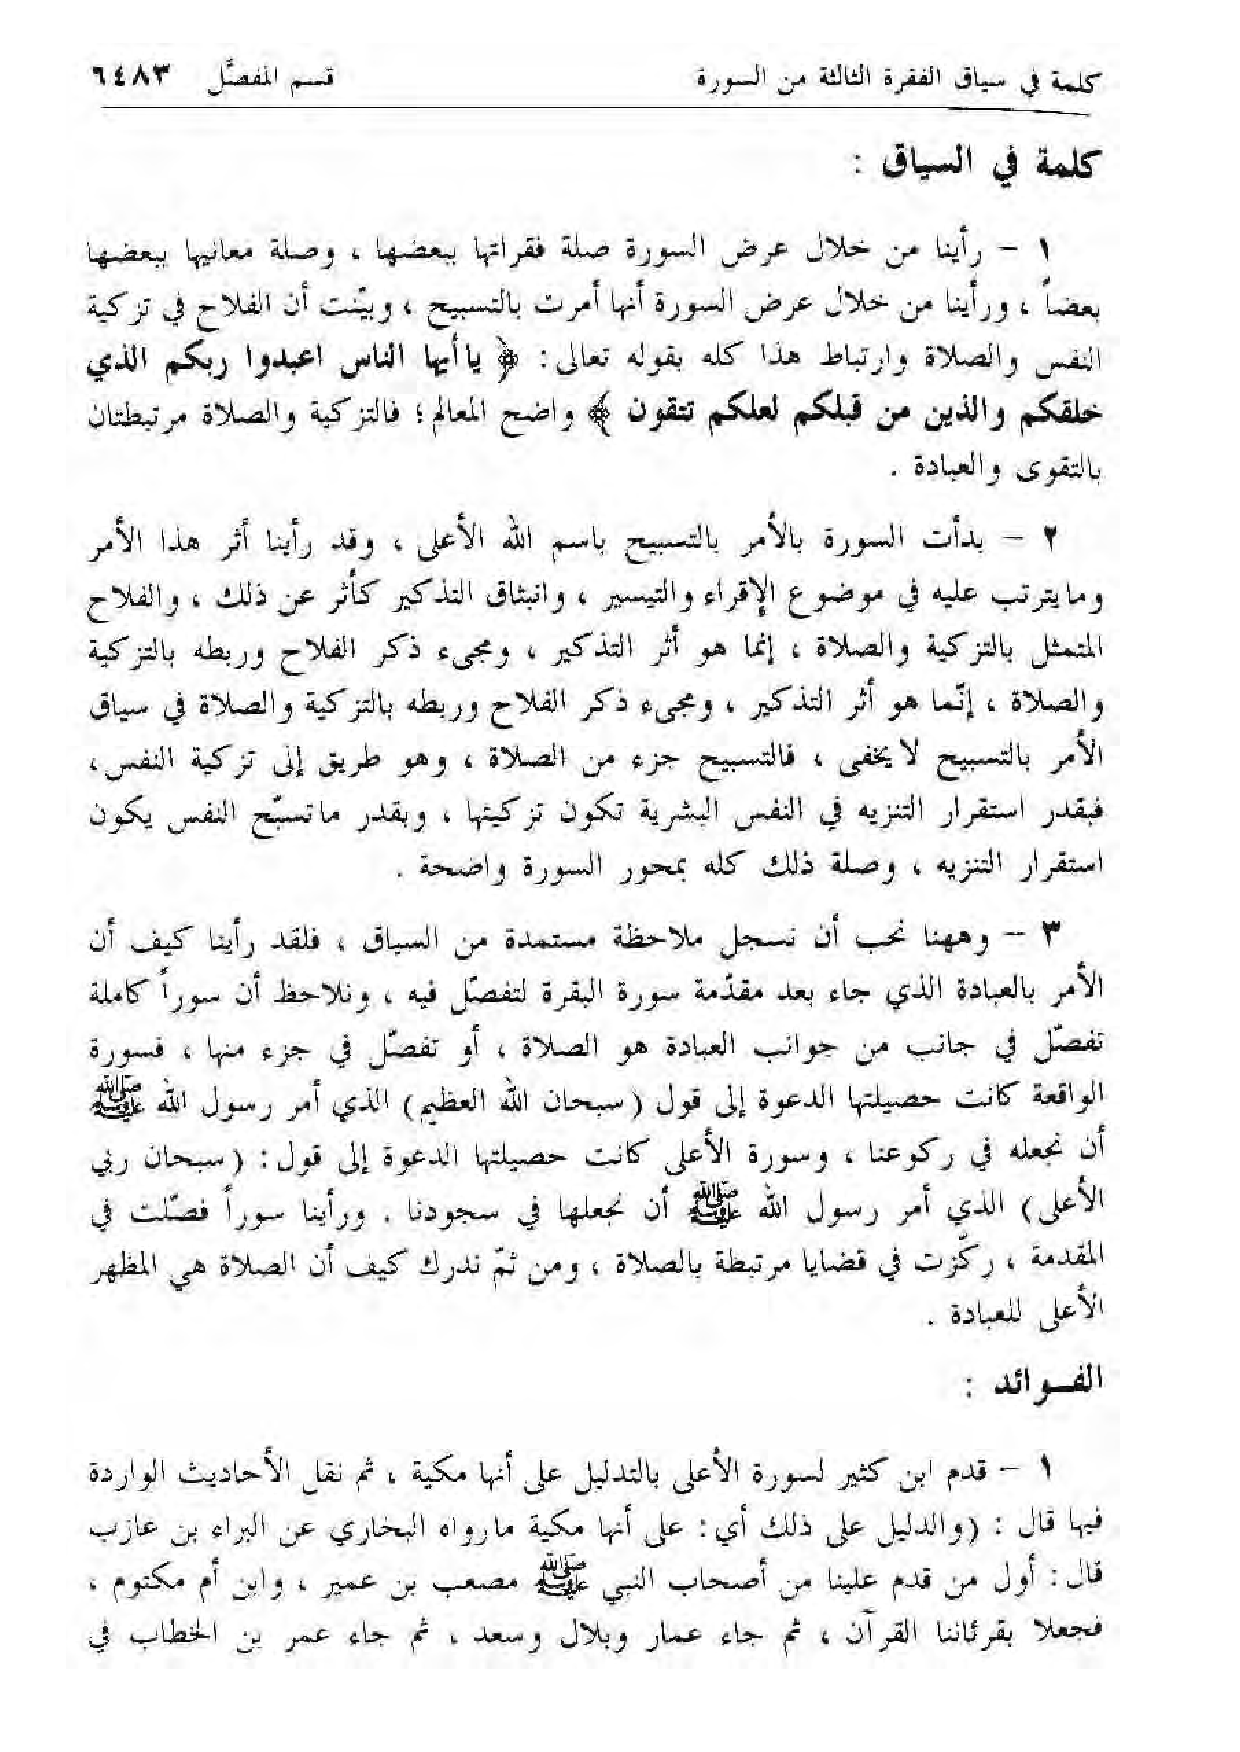 كلمة في سياق الفقرة الثالثة من السورة قسم المفصَّل ٦٤٨٣
كلمة في السياق :
١ – رأينا من خلال عرض السورة صلة فقراتها ببعضها ، وصلة معانيها ببعضها
بعضاً ، ورأينا من خلال عرض السورة أنها أمرت بالتسبيح ، وبيّنت أن الفلاح في تزكية
النفس والصلاة وارتباط هذا كله بقوله تعالى : ﴿ ياأيها الناس اعبدوا ربكم الذي
خلقكم والذين من قبلكم لعلكم تتقون ﴾ واضح المعالم ؛ فالتزكية والصلاة مرتبطتان
بالتقوى والعبادة .
٢ – بدأت السورة بالأمر بالتسبيح باسم الله الأعلى ، وقد رأينا أثر هذا الأمر
ومايترتب عليه في موضوع الإقراء والتيسير ، وانبثاق التذكير كأثر عن ذلك ، والفلاح
المتمثل بالتزكية والصلاة ، إنما هو أثر التذكير ، ومجىء ذكر الفلاح وربطه بالتزكية
والصلاة ، إنّما هو أثر التذكير ، ومجىء ذكر الفلاح وربطه بالتزكية والصلاة في سياق
الأمر بالتسبيح لا يخفى ، فالتسبيح جزء من الصلاة ، وهو طريق إلى تزكية النفس ،
فبقدر استقرار التنزيه في النفس البشرية تكون تزكيتها ، وبقدر ماتسبّح النفس يكون
استقرار التنزيه ، وصلة ذلك كله بمحور السورة واضحة .
٣ – وههنا نحب أن نسجل ملاحظة مستمدة من السياق ، فلقد رأينا كيف أن
الأمر بالعبادة الذي جاء بعد مقدّمة سورة البقرة لتفصّل فيه ، ونلاحظ أن سوراً كاملة
تفصّل في جانب من جوانب العبادة هو الصلاة ، أو تفصّل في جزء منها ، فسورة
الواقعة كانت حصيلتها الدعوة إلى قول (سبحان الله العظيم) الذي أمر رسول الله ﷺ
أن نجعله في ركوعنا ، وسورة الأعلى كانت حصيلتها الدعوة إلى قول : (سبحان ربي
الأعلى) الذي أمر رسول الله ﷺ أن نجعلها في سجودنا . ورأينا سوراً فصّلت في
المقدمة ، ركّزت في قضايا مرتبطة بالصلاة ، ومن ثمّ ندرك كيف أن الصلاة هي المظهر
الأعلى للعبادة .
الفـوائد :
١ – قدم ابن كثير لسورة الأعلى بالتدليل على أنها مكية ، ثم نقل الأحاديث الواردة
فيها قال : (والدليل على ذلك أي : على أنها مكية مارواه البخاري عن البراء بن عازب
قال : أول من قدم علينا من أصحاب النبي ﷺ مصعب بن عمير ، وابن أم مكتوم ،
فجعلا يقرئاننا القرآن ، ثم جاء عمار وبلال وسعد ، ثم جاء عمر بن الخطاب في